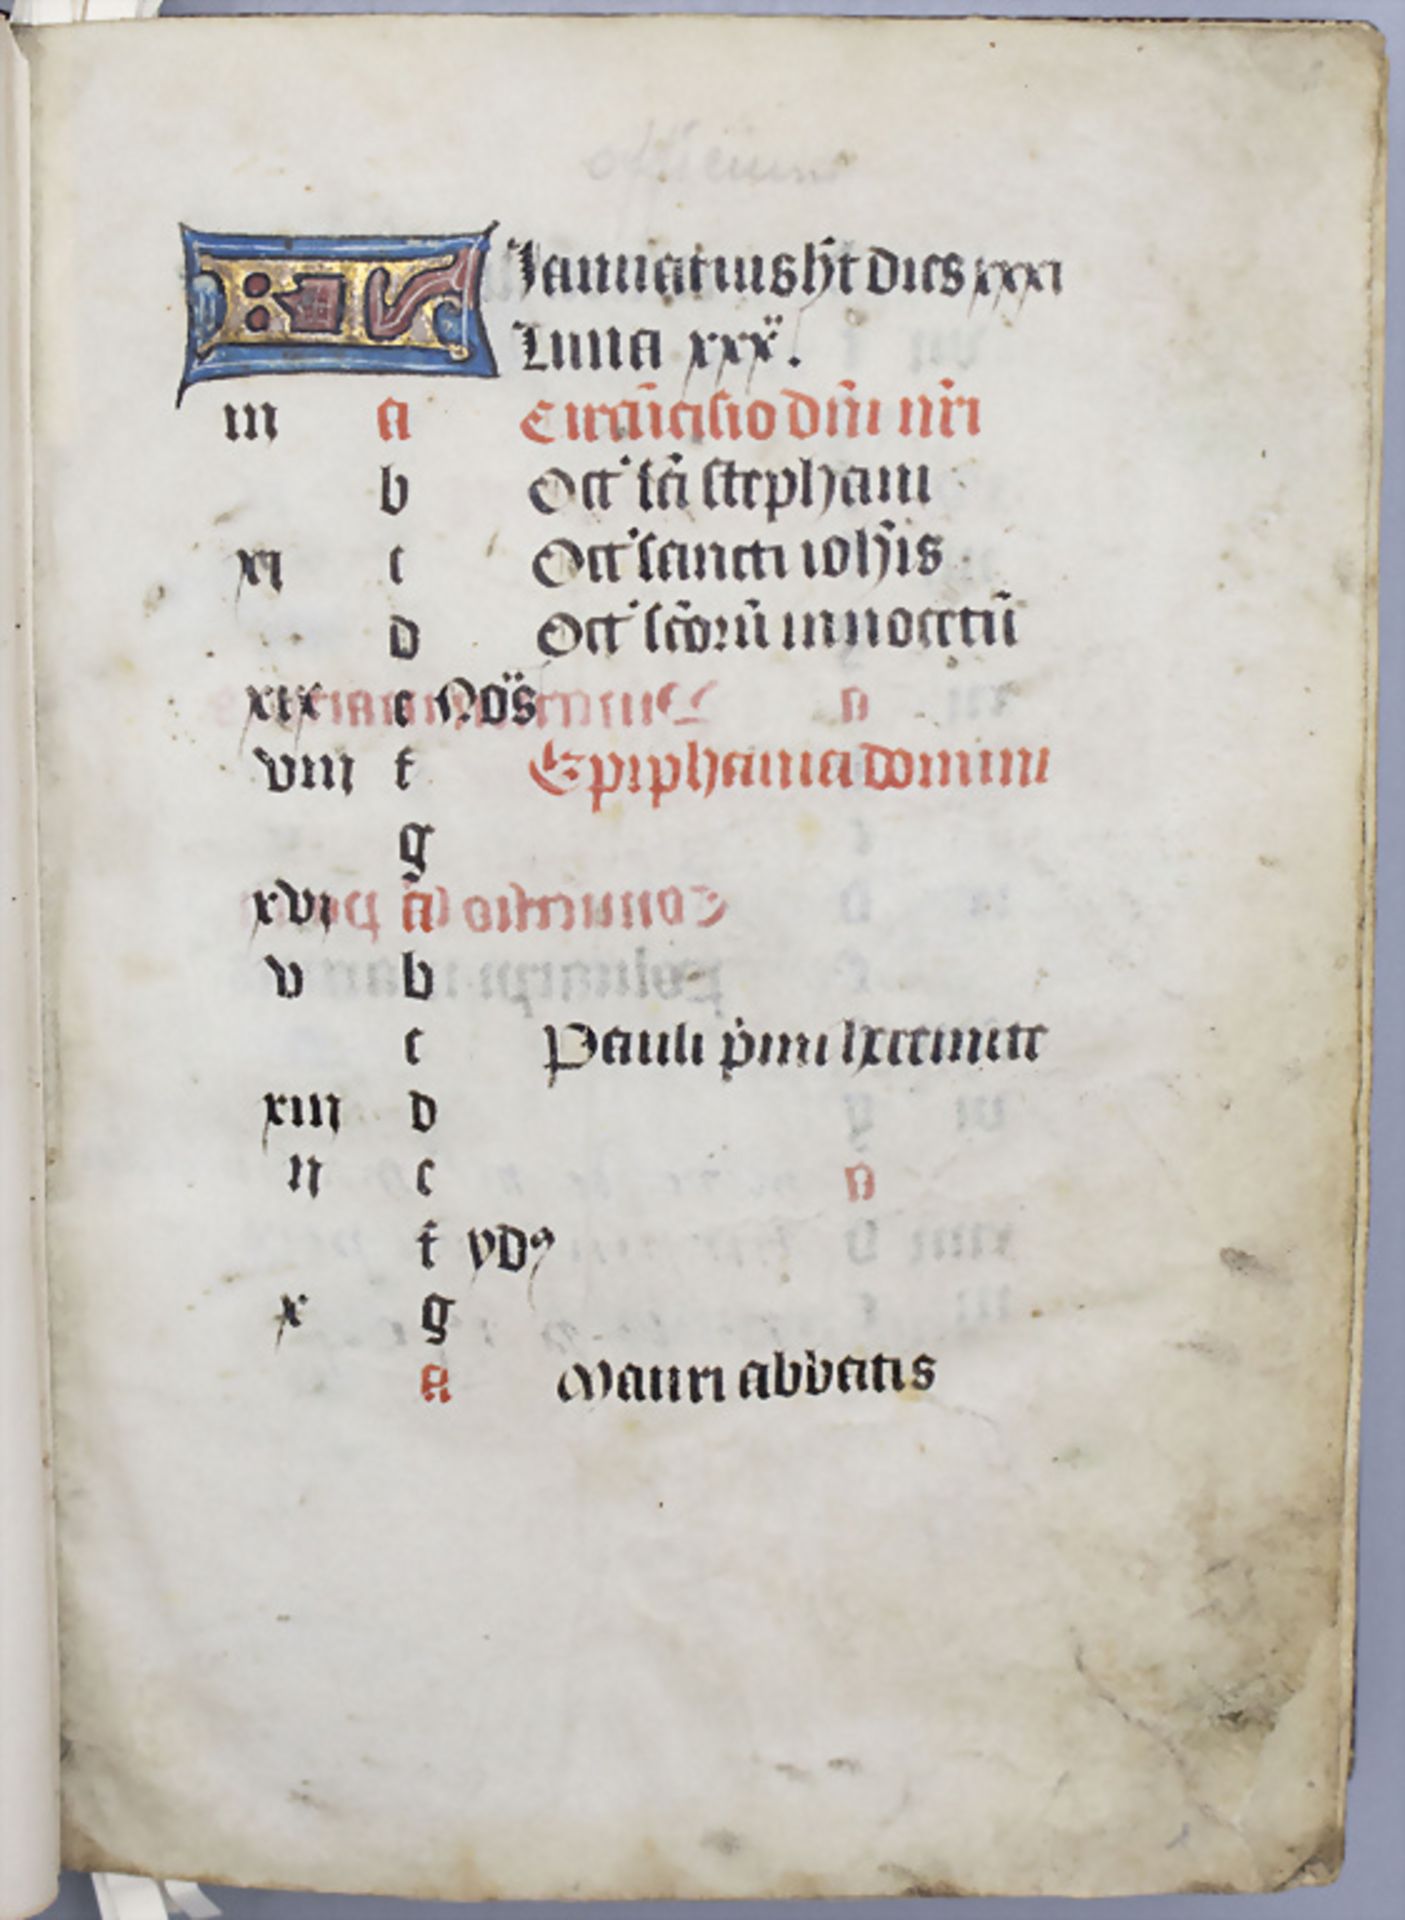 KL Januarius h̄t dies xxxi
Luna xxx.
iii a Circūcisio dn̄i nr̄i
b Oct' sc̄i stephani
xi c Oct' sancti ioh̄is
d Oct' sc̄orū innocētū
xix e Nōs
viii f Epiphania domini
g
xvi a
v b
c Pauli p̓mi heremite
xiii d
ii e
f ydꝰ
x g
a Mauri abbatis